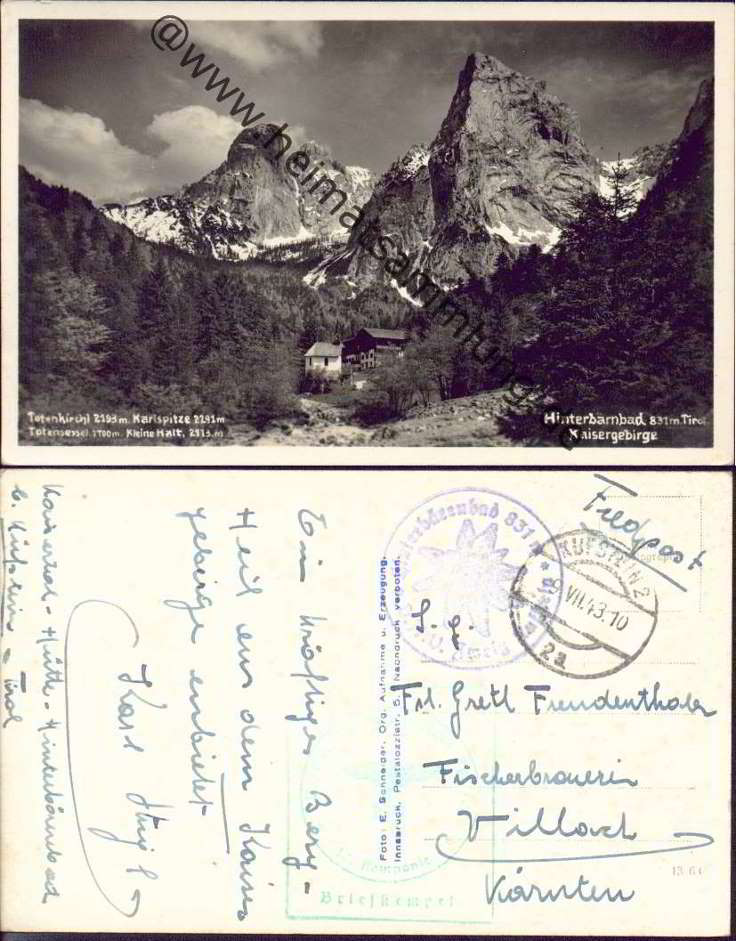 @www.heimatsammlung.de
Totenkirchl 2193m. Karlspitze 2291m
Totensessel 1700m. Kleine Halt, 2113.m
Hinterbärnbad 831m. Tirol
Kaisergebirge
Feldpost
Hinterbärenbad 831 m
KUFSTEIN 2
18. VII. 43. 10
2a
S. g.
Frl. Gretl Freudenthaler
Fischerbrauerei
Villach
Kärnten
13161
Foto: E. Schneider, Org. Aufnahme u. Erzeugung.
Innsbruck, Pestalozzistr. 5. Nachdruck verboten.
Ein kräftiges Berg-
Heil aus dem Kaiser
gebirge entbietet
Karl
Kaisertal-Hütte-Hinterbärnbad
b. Kufstein - Tirol
Kompanie
Briefstempel